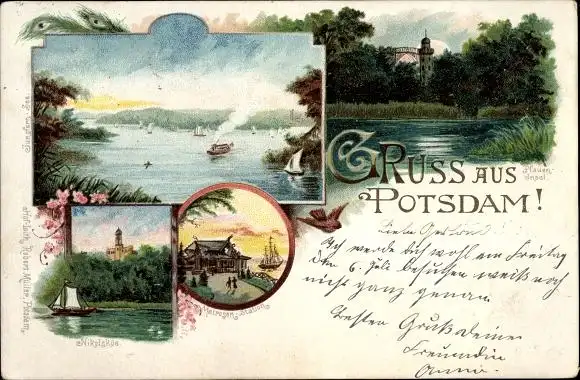 GRUSS AUS
POTSDAM!
Pfauen
Insel.
Matrosen Station
Nikolskoe.
Liebe Gertrud!
Ich werde dich wohl am Freitag
den 6. Juli besuchen weiß noch
nicht ganz genau.
Besten Gruß deine
Freundin
Anni.